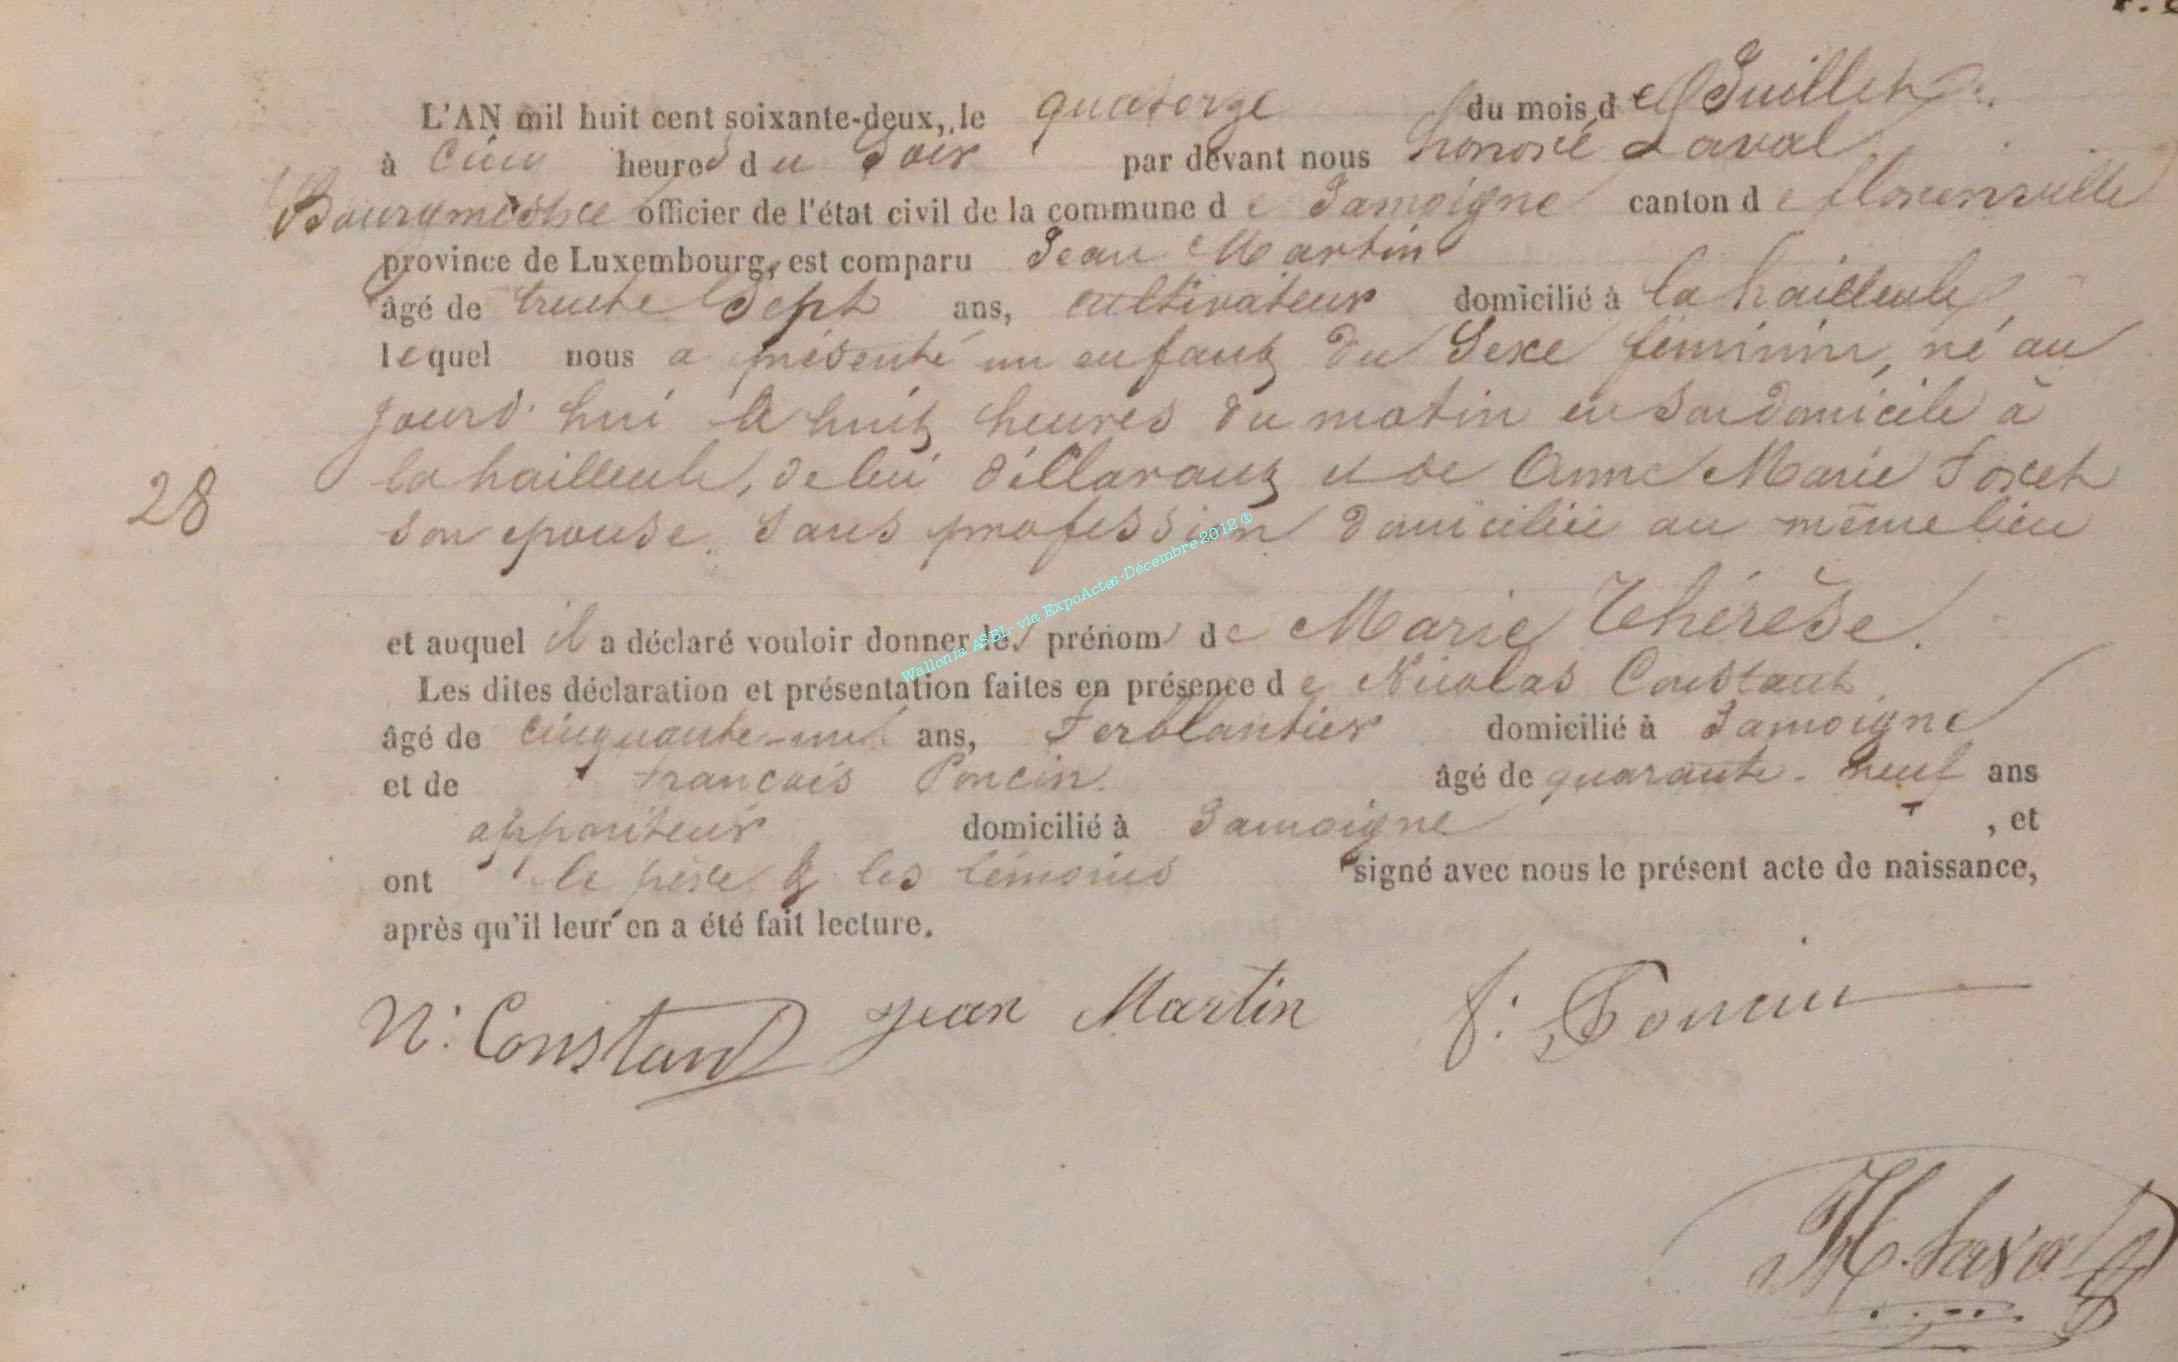 L'AN mil huit cent soixante-deux, le quatorze du mois de Juillet
à cinq heures du Soir par devant nous honoré Laval
Bourgmestre officier de l'état civil de la commune de Jamoigne canton de florenville
province de Luxembourg, est comparu Jean Martin
âgé de trente Sept ans, cultivateur domicilié à la hailleule
lequel nous a présenté un enfant du Sexe féminin, né au
jourd'hui à huit heures du matin en son domicile à
la hailleule, de lui déclarant et de Anne Marie
28
son epouse sans profession domiciliée au même lieu
et auquel il a déclaré vouloir donner les prénoms de Marie Thérèse.
Les dites déclaration et présentation faites en présence de Nicolas Constant
âgé de cinquante-un ans, Ferblantier domicilié à Jamoigne
et de françois Poncin âgé de quarante-neuf ans
appariteur domicilié à Jamoigne , et
ont le père & les témoins signé avec nous le présent acte de naissance,
après qu'il leur en a été fait lecture.
N: Constant Jean Martin f: Poncin
H. Laval
Wallonia ASBL via ExpoActes-Décembre 2012 ®